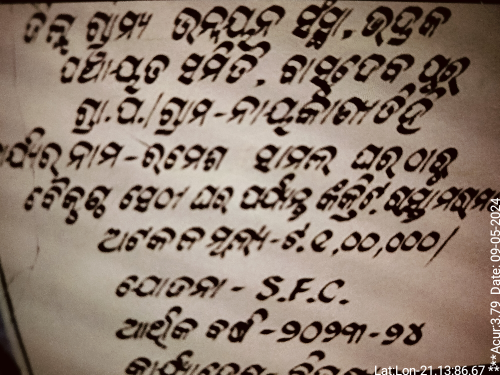 ଜିଲ୍ଲା ଗ୍ରାମ୍ୟ ଉନ୍ନୟନ ସଂସ୍ଥା, ଭଦ୍ରକ
ପଞ୍ଚାୟତ ସମିତି, ବାସୁଦେବ ପୁର
ଗ୍ରା.ପ./ଗ୍ରାମ-ନାୟକାଣୀଡିହି
ନାମ-ରମେଶ ସାମଲ ଘର ଠାରୁ
ବୈକୁଣ୍ଠ ସେଠୀ ଘର ପର୍ଯ୍ୟନ୍ତ କଂକ୍ରିଟ୍ ରାସ୍ତା
ଅଟକଳ ମୂଲ୍ୟ-ଟ.୧,୦୦,୦୦୦/
ଯୋଜନା - S.F.C.
ଆର୍ଥିକ ବର୍ଷ -୨୦୨୩-୨୪
Lat:Lon-21.13:86.67
***Acur:3.79 Date: 09-05-2024